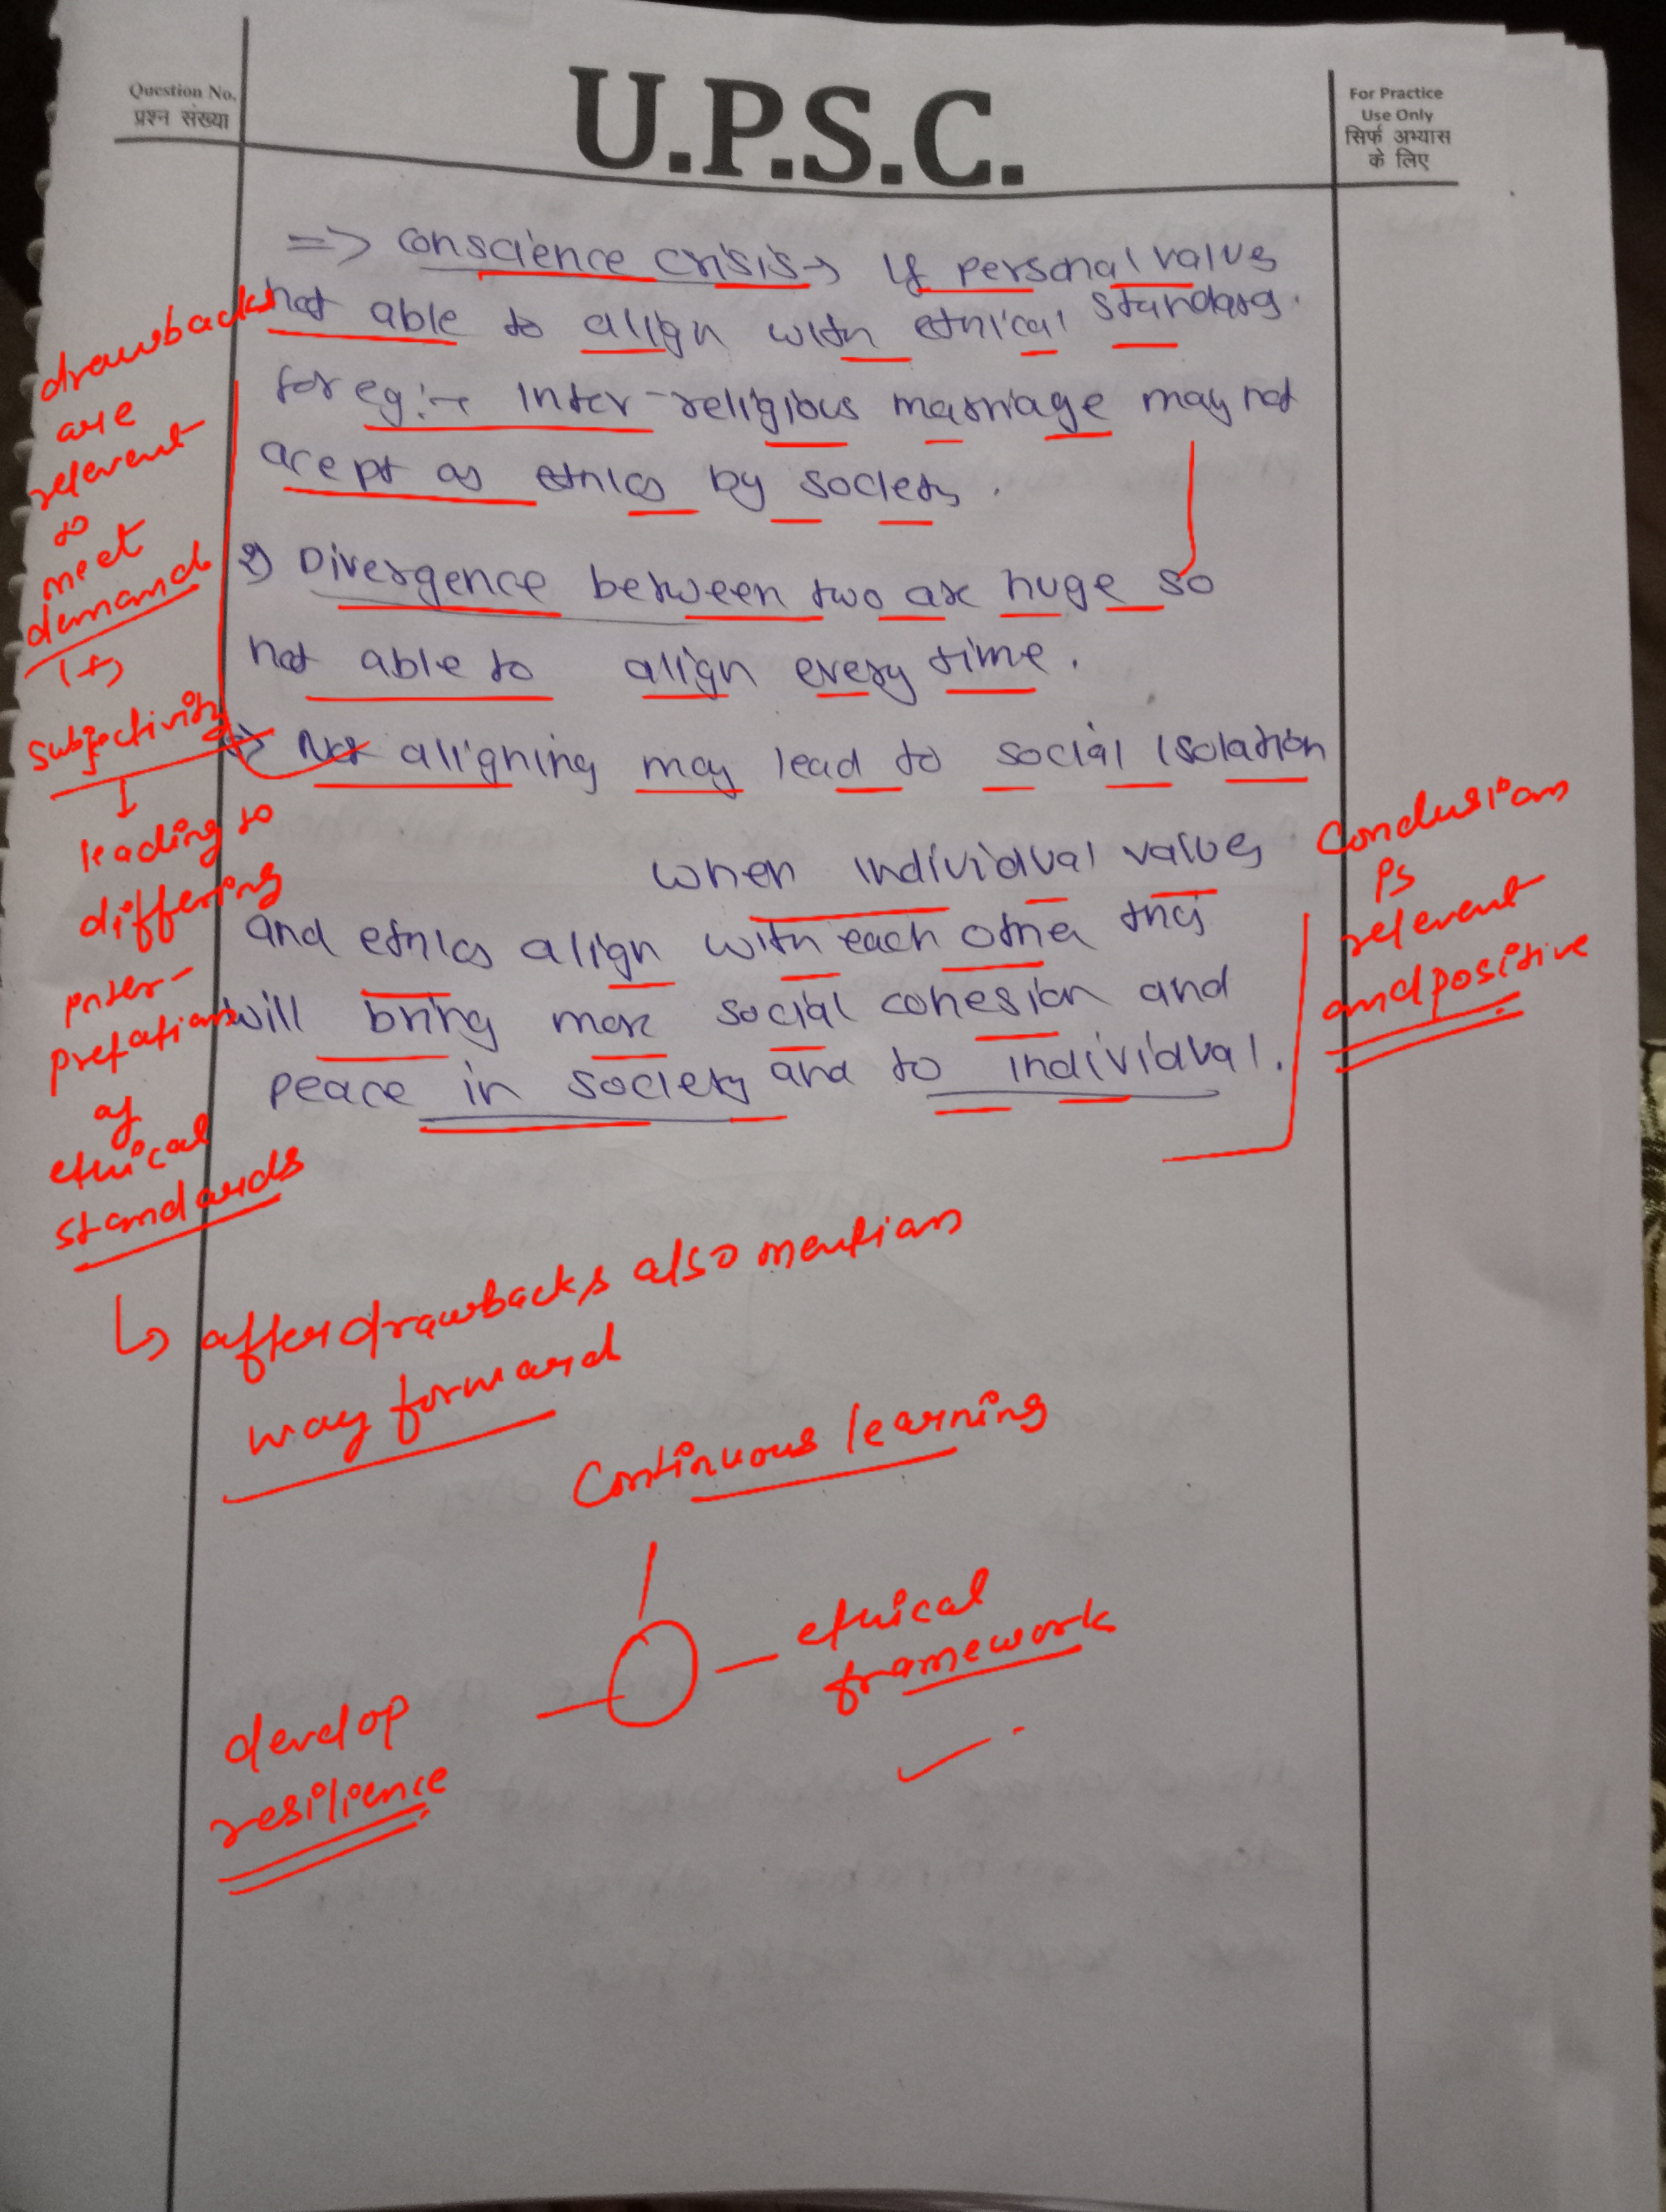 Question No.
प्रश्न संख्या
U.P.S.C.
For Practice
Use Only
सिर्फ अभ्यास
के लिए
=> conscience crisis → If personal values
not able to align with ethical standars.
for eg:→ Inter-religious marriage may not
acept as ethics by society.
2) Divergence between two are huge so
not able to align every time.
=> Not aligning may lead to social isolation
when individual values
and ethics align with each other they
will bring more social cohesion and
peace in society and to individual.
drawbacks
are
relevent
to
meet
demand
(+)
subjectivity
↓
leading to
differing
inter-
pretations
of
ethical
standards
Conclusion
is
relevent
and positive
↳ after drawbacks also mention
way forward
Continuous learning
ethical
framework
develop
resilience